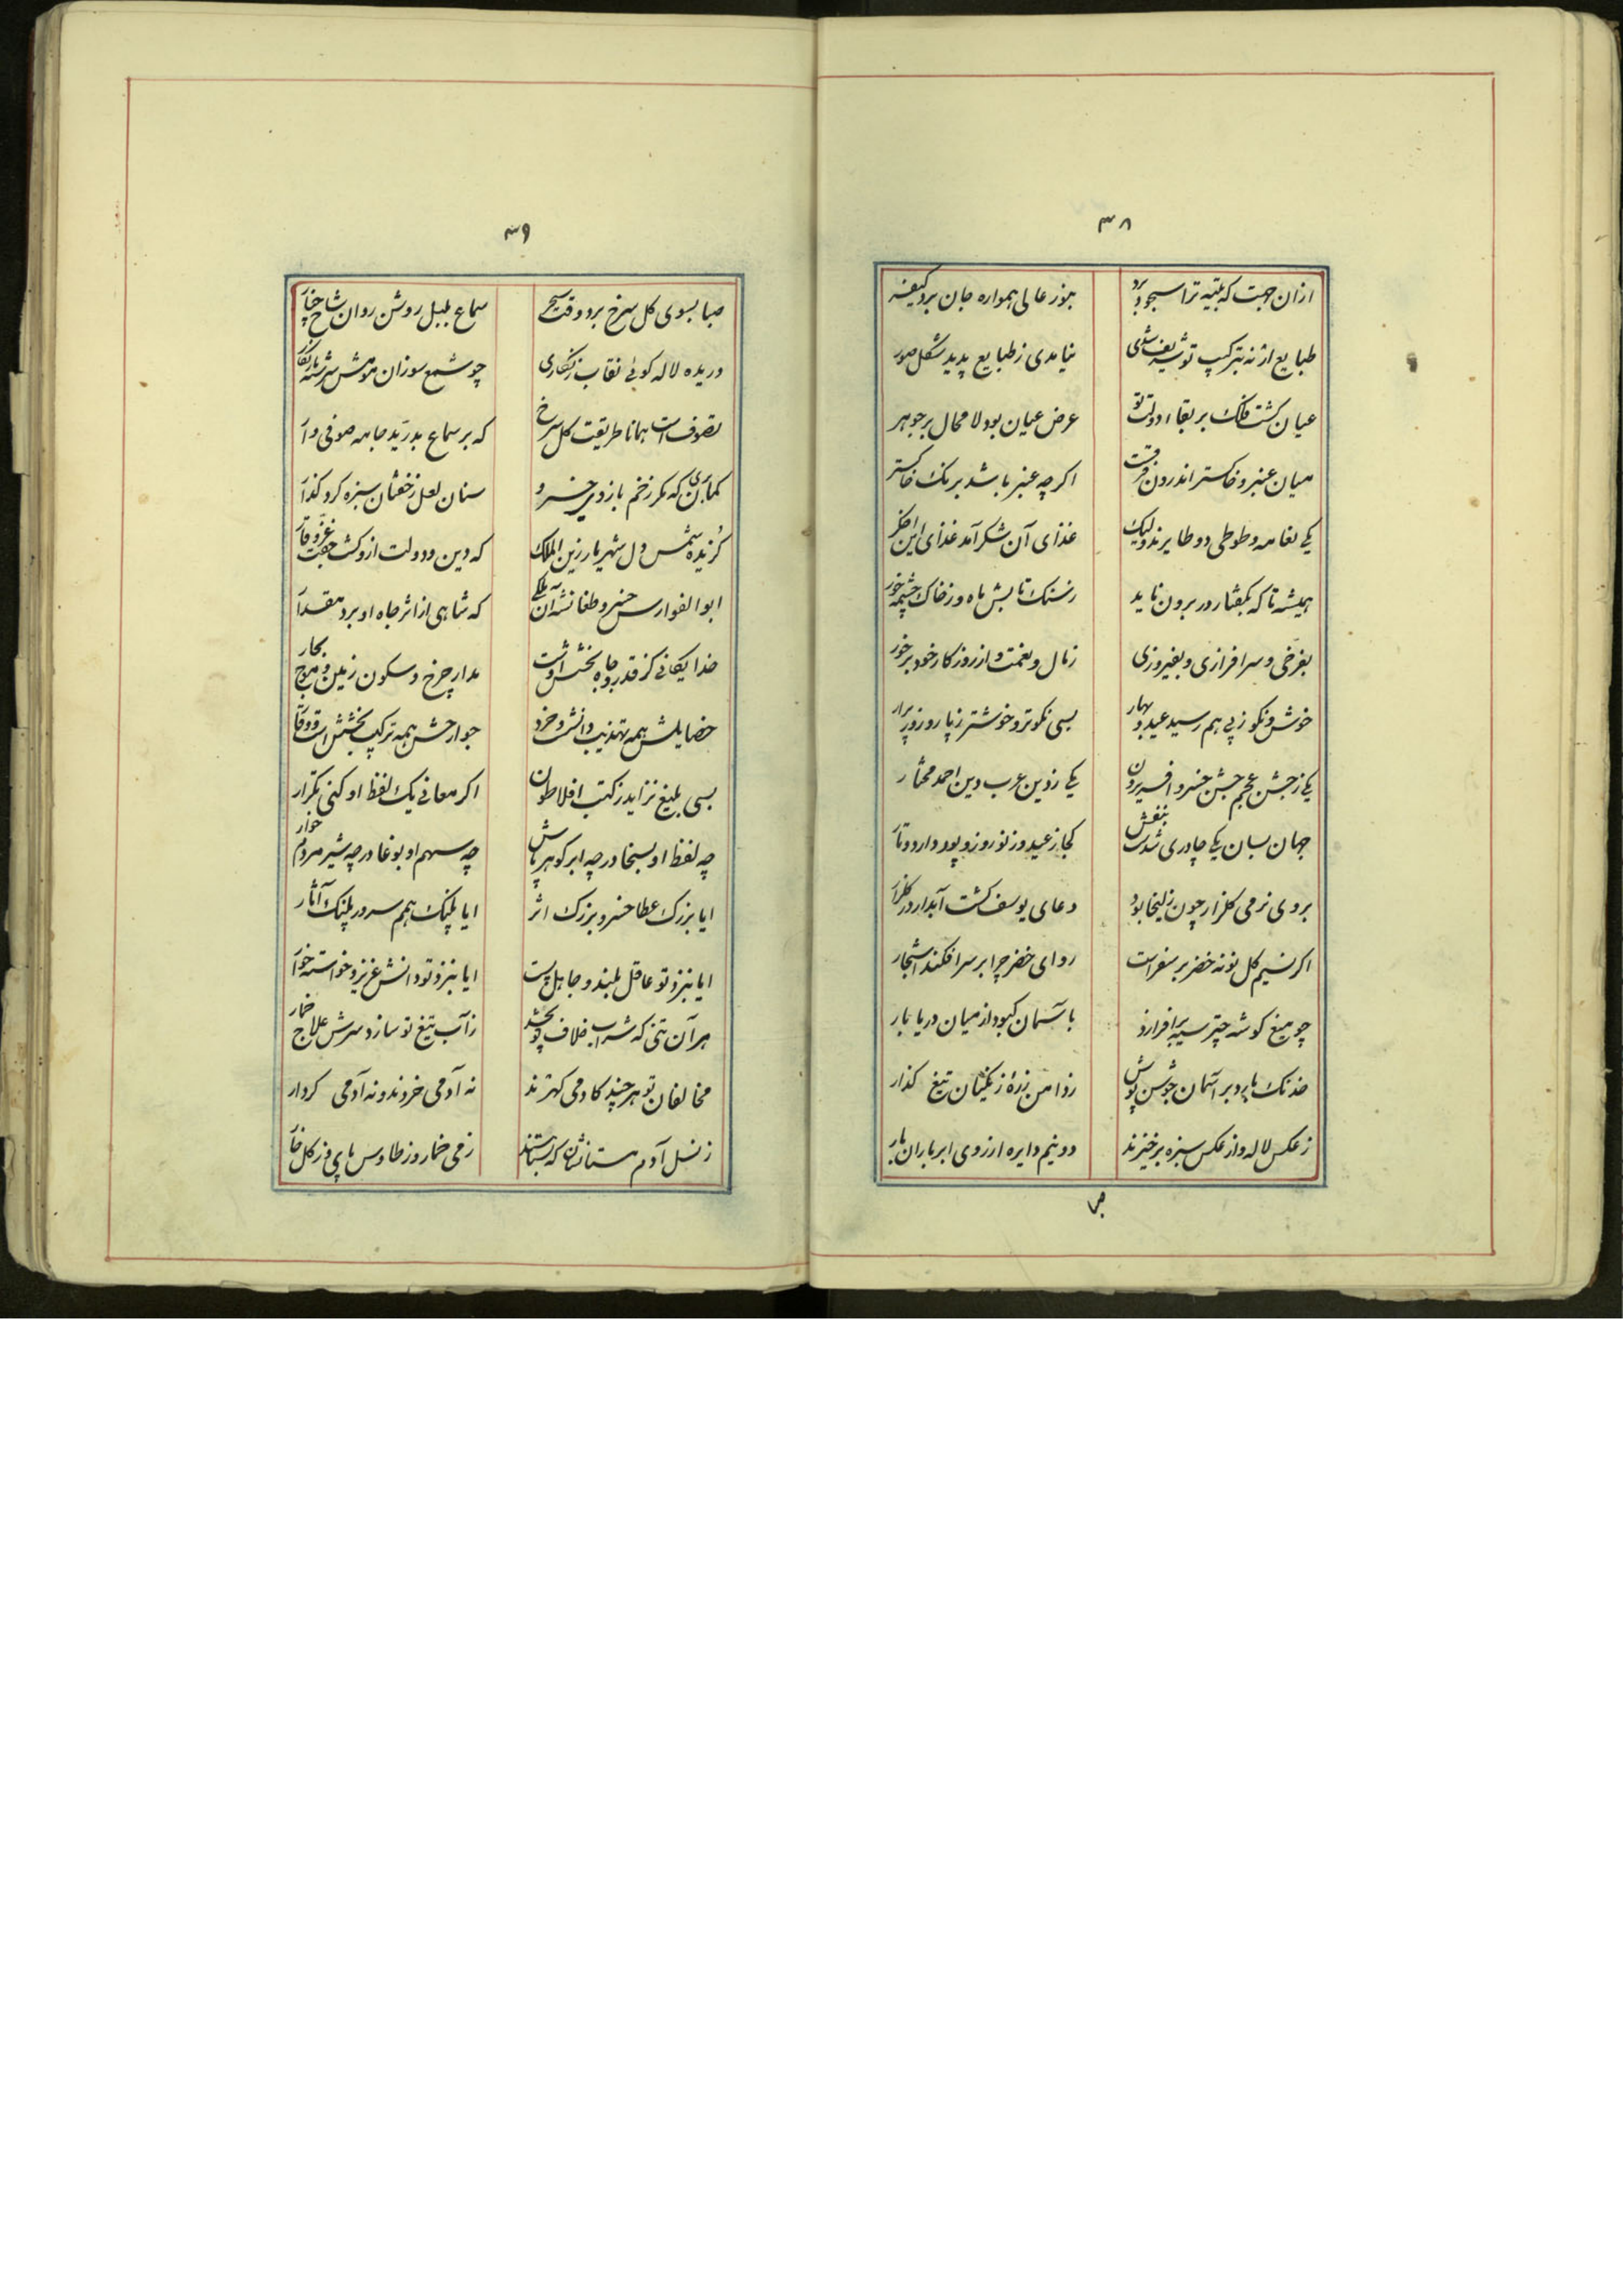 ۳۸
ازان جهت که بتیه ترا سجود برد هنوز عالی همواره جان برد کیفر
طبایع ار نه بترکیب تو شریف شدی نیامدی ز طبایع پدید شکل صور
عیان کشت فلک بر بقاء دولت تو عرض عیان بود لا محال بر جوهر
میان عنبر و خاکستر اندرون فرقست اکرچه عنبر باشد برنک خاکستر
یکی نعامه و طوطی دو طایرند ولیک غذای آن شکر آمد غذای این اخکر
همیشه تا که بکفتار در برون ناید ز سنک تابش ماه و ز خاک چشمه خور
بفرخی و سرافرازی و بفیروزی ز مال و نعمت و از روزکار خود برخور
خوش و نکو ز پی هم رسید عید و بهار بسی نکوتر و خوشتر ز پار و ز پیرار
یکی ز جشن عجم جشن خسرو افریدون یکی ز دین عرب دین احمد مختار
جهان بسان یکی چادری شدست بنفش کجا ز عید و ز نوروز پود دارد و تار
بروی نرمی کلزار چون زلیخا بود دعای یوسف کشت آبدار در کلزار
اکر نسیم کل نو نه خضر بر سفر است ردای خضر چرا بر سر افکند اشجار
چو میغ کوشه چتر سیه برافرازد باسمان کبود از میان دریا بار
خدنک بارد بر آسمان جوشن پوش ز دامن زره زنکیان تیغ کذار
ز عکس لاله و از عکس سبزه برخیزند دو نیم دایره از روی ابر باران بار
۳۹
صبا بسوی کل سرخ برد وقت سحر سماع بلبل روشن روان ز شاخ چنار
دریده لاله کوئی نقاب زنکاری چو شمع سوزان هوش سرشته با زنکار
تصوف است همانا طریقت کل سرخ که بر سماع بدرید جامه صوفی وار
کمان بری که مکر زخم بازوی خسرو سنان لعل ز خفتان سبزه کرد کذار
کزیده شمس دول شهریار زین الملک که دین و دولت ازو کشت جفت عز و وقار
ابوالفوارس خسرو طغانشه آن ملکی که شاهی از اثر جاه او برد مقدار
خدایکانی کز قدر و جاه بخشش اوست مدار چرخ و سکون زمین و موج بحار
خصایلش همه تهذیب دانش و خرد جوارحش همه ترکیب بخشش است و وقار
بسی بلیغ تر اید ز کتب افلاطون اکر معانی یک لفظ او کنی تکرار
چه لفظ او بسخا در چه ابر کوهر پاش چه سهم او بوغا در چه شیر مردم خوار
ایا بزرک عطا خسرو بزرک اثر ایا پلنک همم سرور پلنک آثار
ایا بنزد تو عاقل بلند و جاهل پست ایا بنزد تو دانش عزیز و خواسته خوار
هر آن تنی که شراب خلاف تو بچشد ز آب تیغ تو سازد سرش علاج خمار
مخالفان تو هر چند کادمی کهرند نه آدمی خردند و نه آدمی کردار
ز نسل آدم هستند شان که هستند ز می خمار و ز طاوس پای و ز کل خار